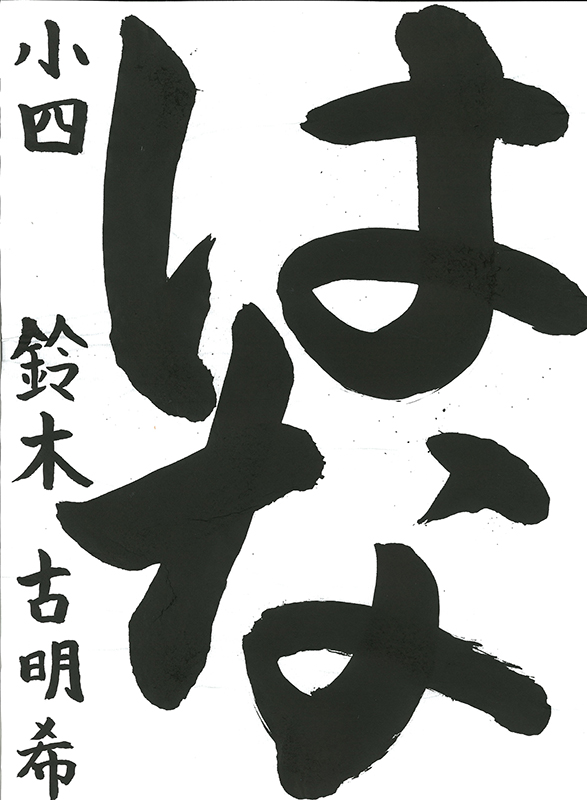 はな
小四 鈴木 古明希